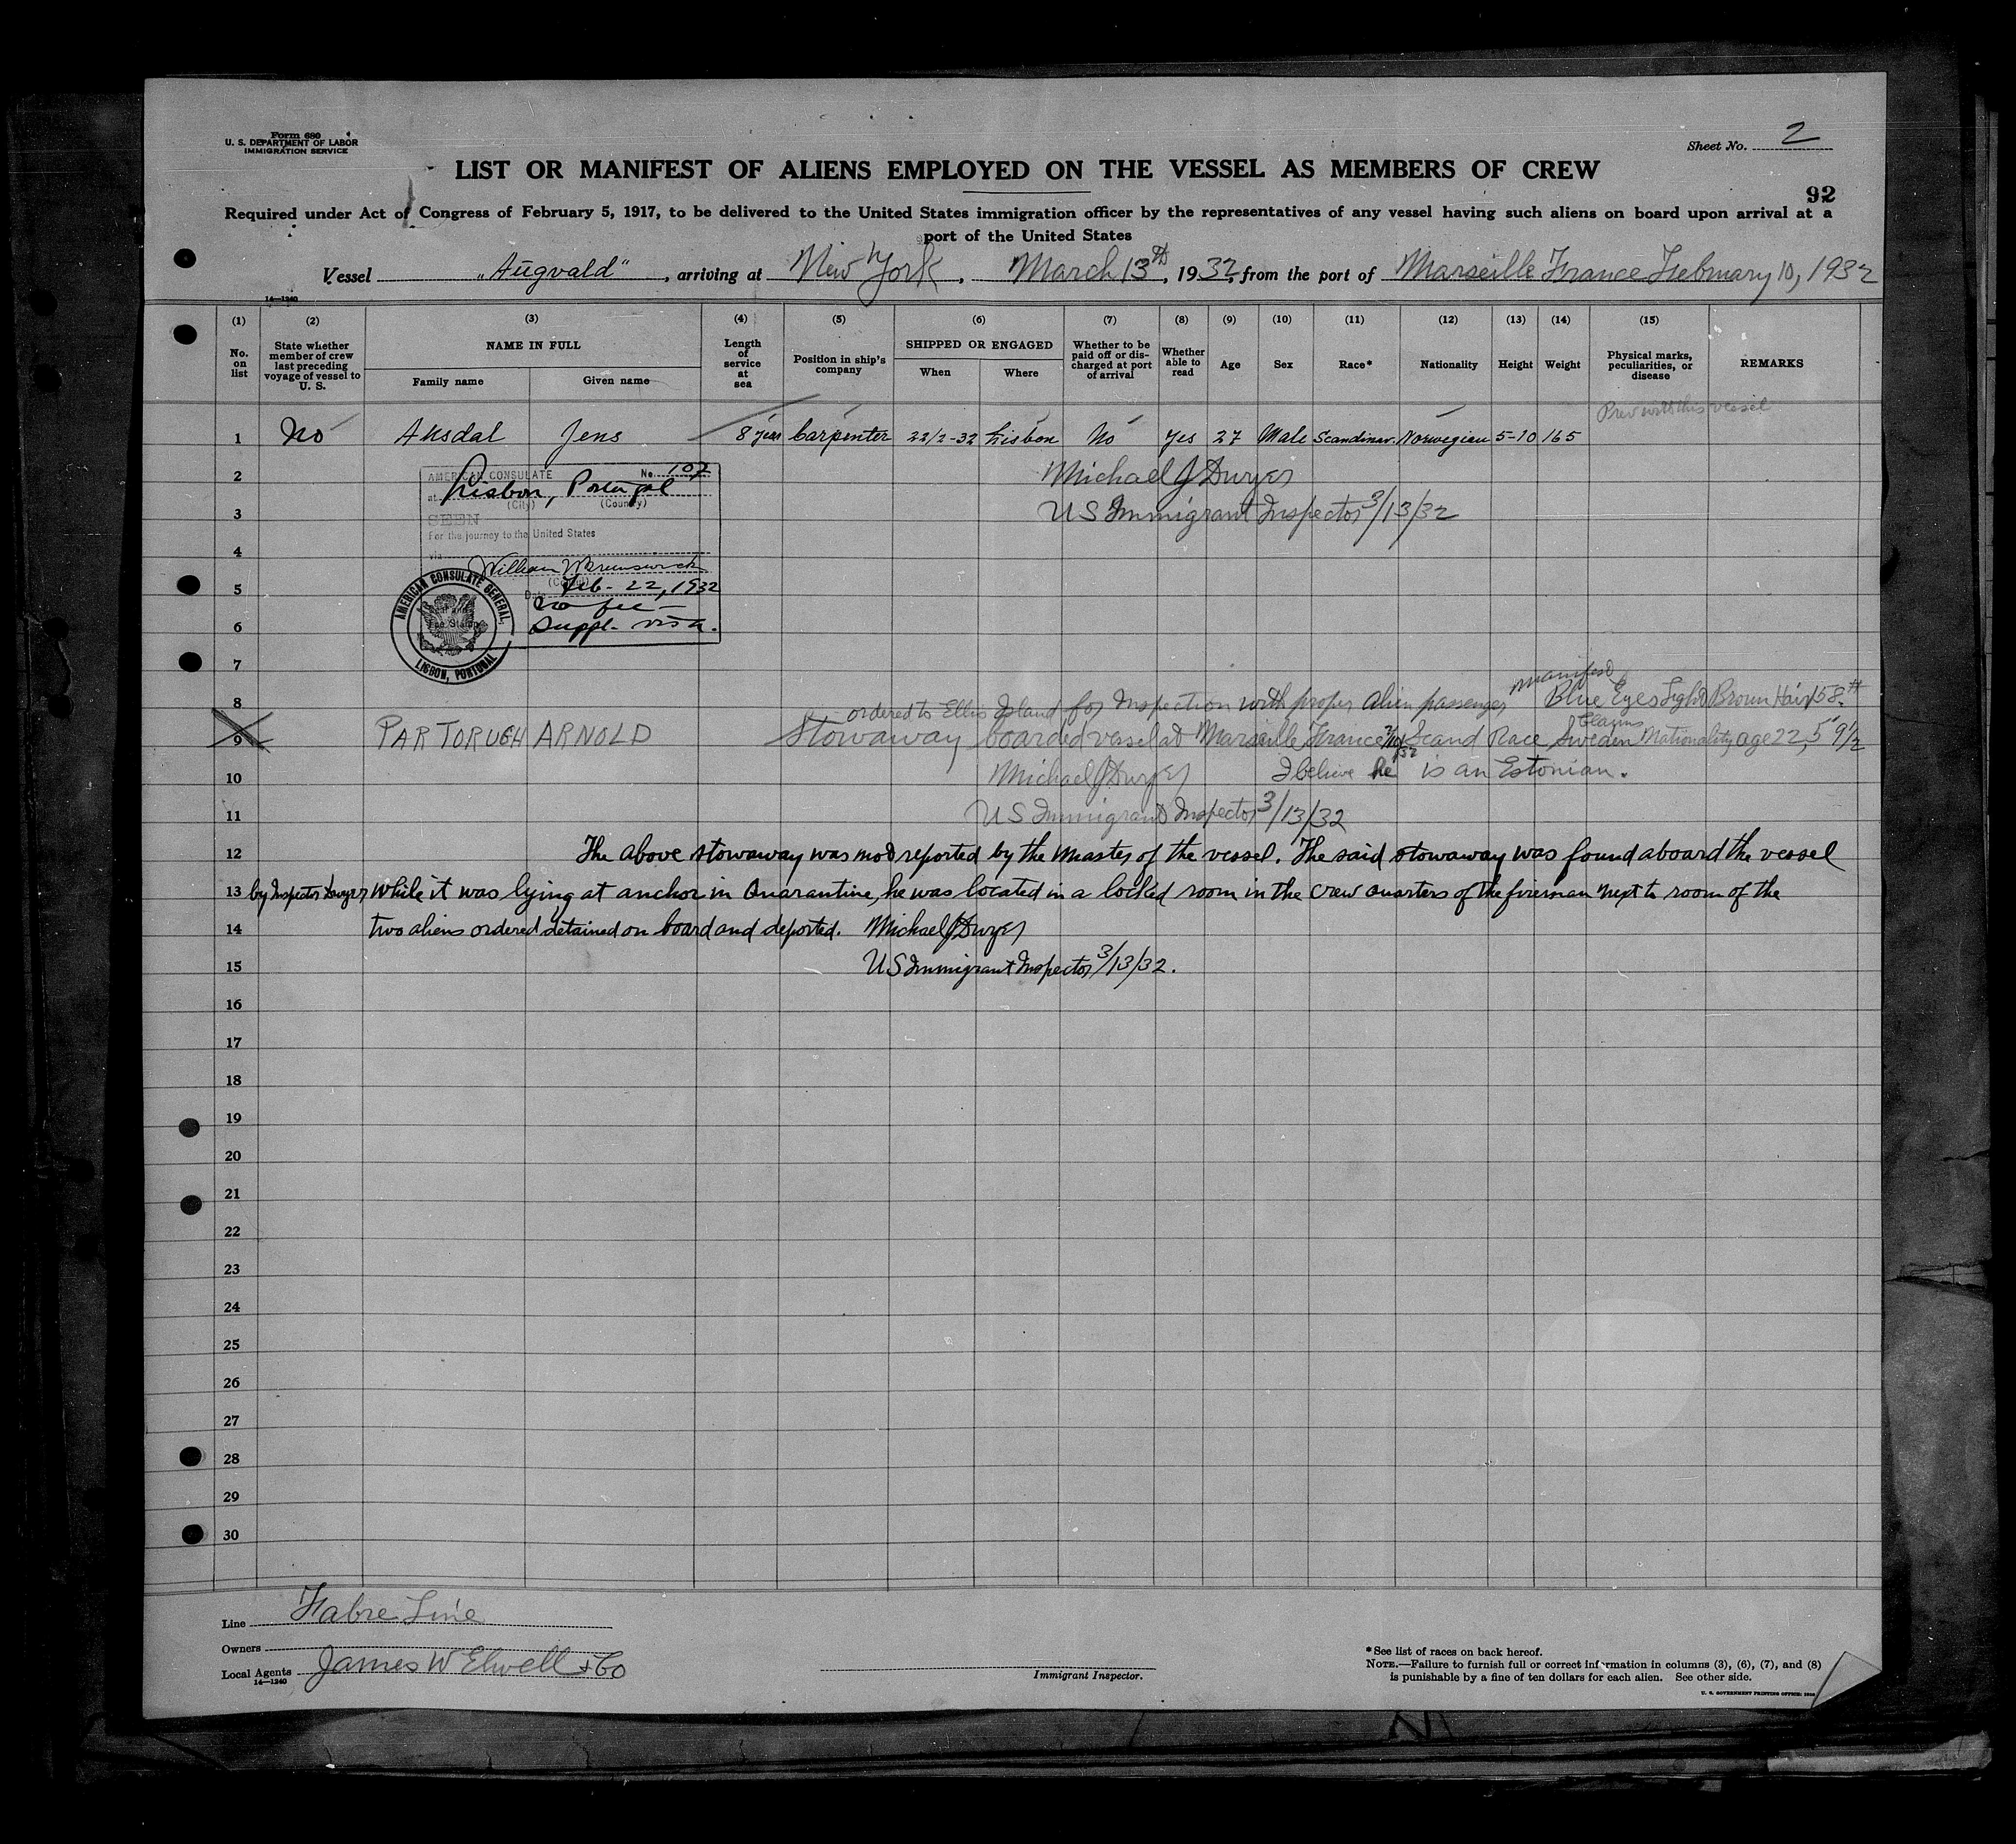 Form 680
U. S. DEPARTMENT OF LABOR
IMMIGRATION SERVICE
Sheet No. 2
LIST OR MANIFEST OF ALIENS EMPLOYED ON THE VESSEL AS MEMBERS OF CREW
92
Required under Act of Congress of February 5, 1917, to be delivered to the United States immigration officer by the representatives of any vessel having such aliens on board upon arrival at a
port of the United States
Vessel "Augvald", arriving at New York, March 13th, 1932, from the port of Marseille France February 10, 1932
14—1240
(1) (2) (3) (4) (5) (6) (7) (8) (9) (10) (11) (12) (13) (14) (15)
No. on list
State whether member of crew last preceding voyage of vessel to U. S.
NAME IN FULL
Family name
Given name
Length of service at sea
Position in ship's company
SHIPPED OR ENGAGED
When
Where
Whether to be paid off or discharged at port of arrival
Whether able to read
Age
Sex
Race*
Nationality
Height
Weight
Physical marks, peculiarities, or disease
REMARKS
Prev with this vessel
1 No Aksdal Jens 8 years Carpenter 22/2-32 Lisbon No Yes 27 Male Scandinav. Norwegian 5-10 165
2 Michael J Dwyer
3 US Immigrant Inspector 3/13/32
AMERICAN CONSULATE No. 107
at Lisbon, Portugal
(City) (Country)
SEEN
For the journey to the United States
via
William W Brunswick
(Consul)
Date Feb- 22, 1932
No fee-
Suppl- visa.
AMERICAN CONSULATE GENERAL,
LISBON, PORTUGAL
4
5
6
7
8 ordered to Ellis Island for Inspection with proper alien passenger manifest Blue Eyes Light Brown Hair 158#
9 PARTORUGH ARNOLD Stowaway boarded vessel at Marseille France 2/10/32 Scand Race claims Sweden Nationality age 22, 5'9½
10 Michael J Dwyer I believe he is an Estonian.
11 US Immigrant Inspector 3/13/32
12 The above stowaway was not reported by the Master of the vessel. The said stowaway was found aboard the vessel
13 by Inspector Dwyer while it was lying at anchor in Quarantine, he was located in a locked room in the crew quarters of the fireman next to room of the
14 two aliens ordered detained on board and deported. Michael J Dwyer
15 US Immigrant Inspector 3/13/32.
16
17
18
19
20
21
22
23
24
25
26
27
28
29
30
Line Fabre Line
Owners
Local Agents James W Elwell & Co
14—1240
Immigrant Inspector.
* See list of races on back hereof.
NOTE.—Failure to furnish full or correct information in columns (3), (6), (7), and (8)
is punishable by a fine of ten dollars for each alien. See other side.
U. S. GOVERNMENT PRINTING OFFICE: